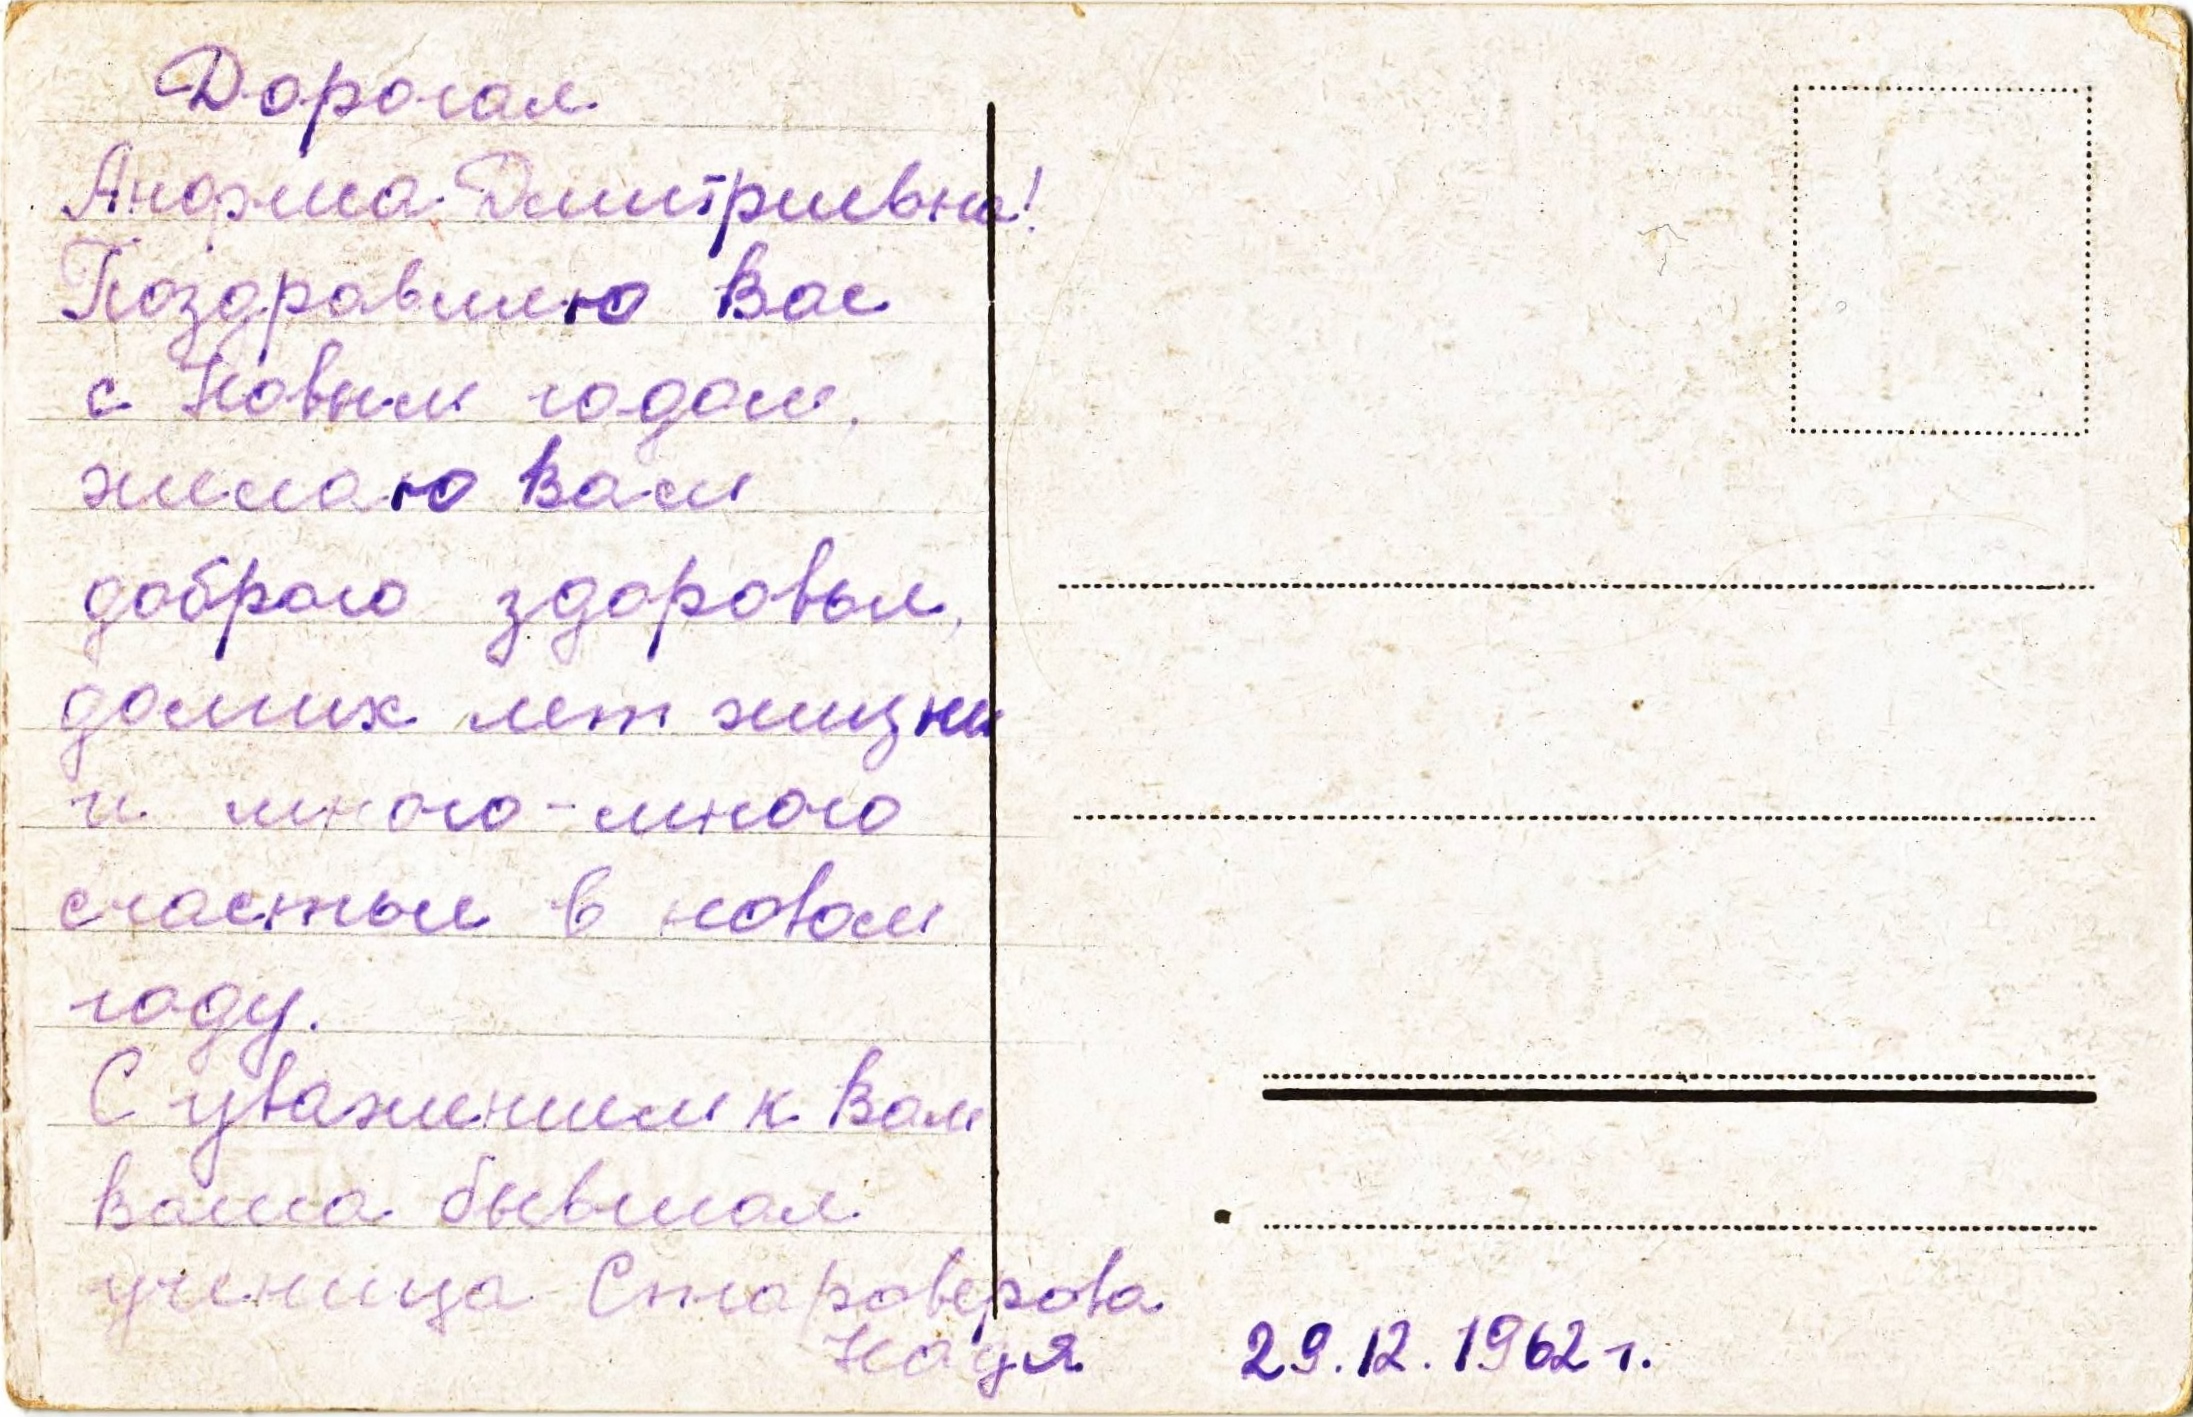 Дорогая
Дмитриевна!
Поздравляю Вас
с Новым годом,
желаю Вам
доброго здоровья,
долгих лет жизни
и много-много
счастья в новом
году.
С уважением к Вам
Ваша бывшая
ученица Староверова
Надя 29.12.1962 г.